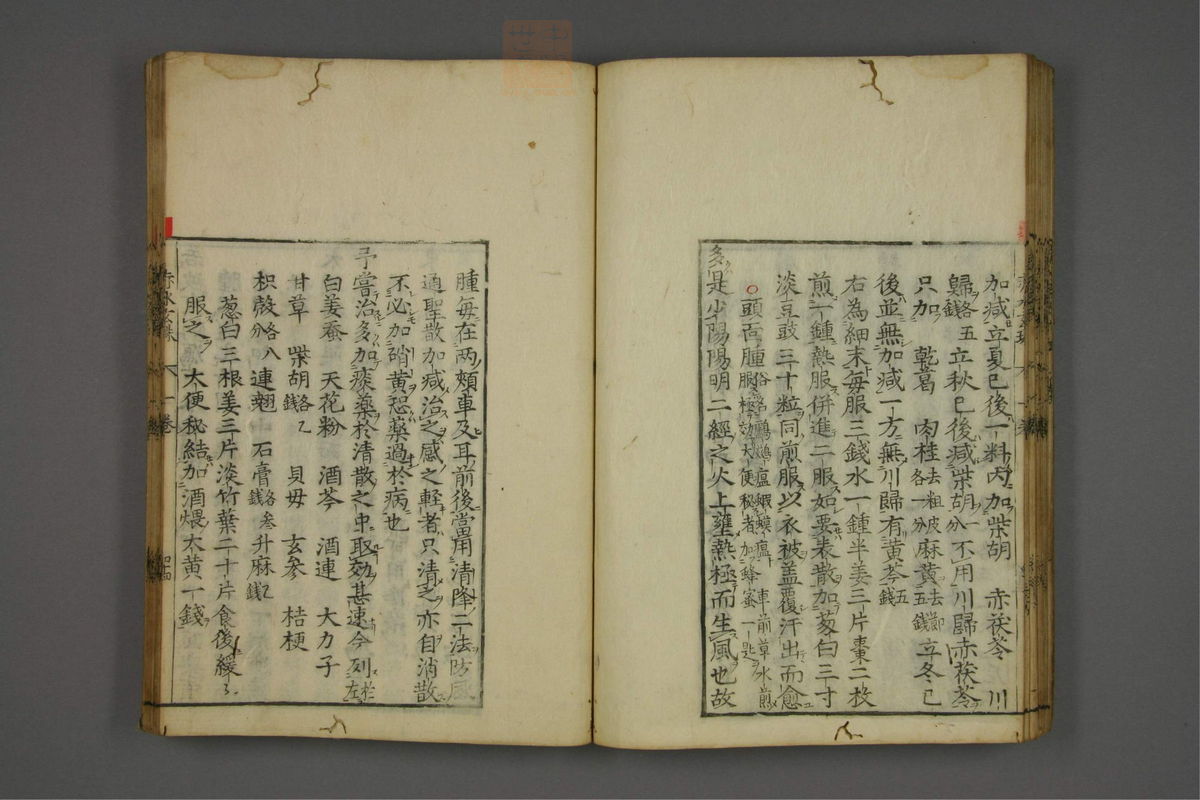 加减立夏已後一料内加柴胡 赤茯苓 川
歸各五錢立秋已後减柴胡一分不用川歸赤茯苓
只加 乾葛 肉桂去粗皮各一分麻黄去節五錢立冬已
後並無加减一方無川歸有黄芩五錢
右為細末每服三錢水一鍾半姜三片棗二枚
煎一鍾熱服併進二服如要表散加葱白三寸
淡豆豉三十粒同煎服以衣被盖覆汗出而愈
○頭面腫俗名鸕鷀瘟蝦蟆瘟車前草水煎服極効大便秘者加蜂蜜一匙
多是少陽陽明二經之火上壅熱極而生風也故
腫每在两頰車及耳前後當用清降二法防風
通聖散加减治之感之軽者只清之亦自消散
不必加硝黄恐藥過於病也
予嘗治多加痰藥於清散之中取効甚速今列於左
白姜蚕 天花粉 酒芩 酒連 大力子
甘草 柴胡各乙錢 貝母 玄參 桔梗
枳殻各八分連翹 石膏各叁錢升麻乙錢
葱白三根姜三片淡竹葉二十片食後緩々
服之大便秘結加酒煨大黄一錢